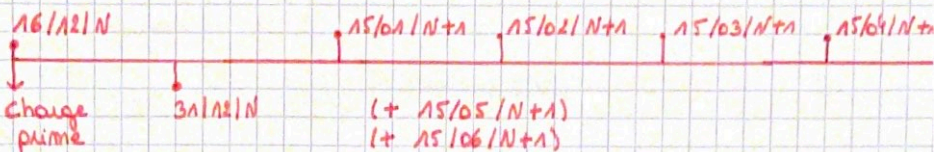 16/12/N 15/01/N+1 15/02/N+1 15/03/N+1 15/04/N+
Charge 31/12/N (+ 15/05/N+1)
prime (+ 15/06/N+1)